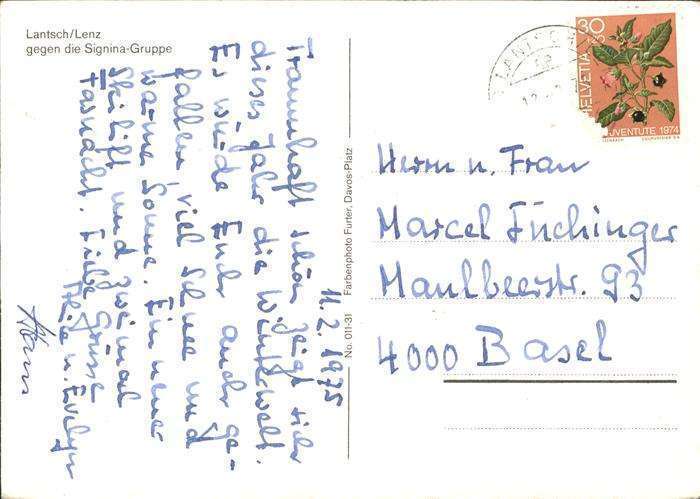 Lantsch/Lenz
gegen die Signina-Gruppe
11.2.1975
Traumhaft schön zeigt sich
dieses Jahr die Winterwelt.
Es würde Euch auch ge-
fallen, viel Schnee und
warme Sonne. Ein neuer
Skilift und zweimal
Fasnacht. Liebe Grüsse
u. Evelyn
Hans
No. 011-31 Farbenphoto Furter, Davos-Platz
30
HELVETIA
JUVENTUTE 1974
Herrn u. Frau
Marcel Füchinger
Maulbeerstr. 93
4000 Basel